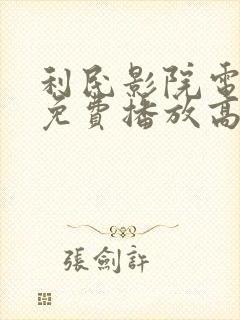 利民影院電
免費播放高
張劍許